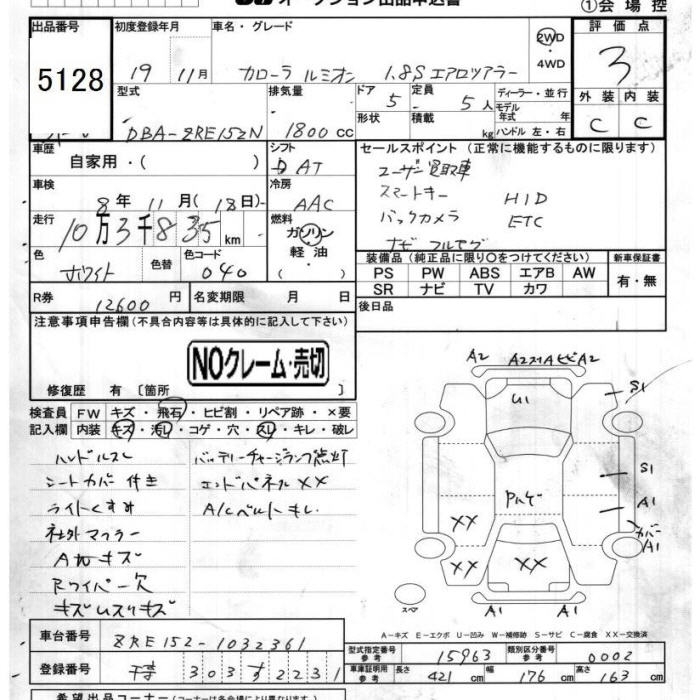 オークション出品申込書
①会場控
出品番号 初度登録年月 車名・グレード 評価点
5128
19 11月 カローラ ルミオン 1.8S エアロツアラー
2WD
・4WD
3
型式 排気量 ドア 定員 ディーラー・並行 外装 内装
DBA-ZRE152N 1800cc 5 5人
モデル年式 年式
形状 積載 kg ハンドル 左・右
C C
車歴 シフト セールスポイント (正常に機能するものに限ります)
自家用・( ) DAT
ユーザー買取車
車検 冷房
8年 11月 (18日) AAC
スマートキー HID
走行 燃料
10万3千835km ガソリン
・軽油
・( )
バックカメラ ETC
ナビ フルセグ
色 色替 カラーコード
ホワイト 040
装備品 (純正品に限り○をつけてください) 新車保証書
PS PW ABS エアB AW 有・無
SR ナビ TV カワ
R券 12600円 名変期限 月 日
後日品
注意事項申告欄 (不具合内容等は具体的に記入して下さい)
NOクレーム・売切
修復歴 有 〔箇所 〕
検査員 FW キズ・飛石・ヒビ割・リペア跡・×要
記入欄 内装 キズ・汚レ・コゲ・穴・スレ・キレ・破レ
ハンドルスレ バッテリーチャージランプ点灯
シートカバー付き エンドパネルXX
ライトくすみ A/Cベルトキレ
社外マフラー
A九キズ
Rワイパー欠
キズUスリキズ
A2 A2 ヒビA2
U1 S1
S1
A1
XX カバー
A1
XX XX
スペア
A1 A1
A-キズ E-エクボ U-凹み W-補修跡 S-サビ C-腐食 XX-交換済
車台番号 ZRE152-1032361
登録番号 303す2231
型式指定番号 参考 15963 類別区分番号 参考 0002
車庫証明用 参考 長さ 421cm 幅 176cm 高さ 163cm
希望出品コーナー